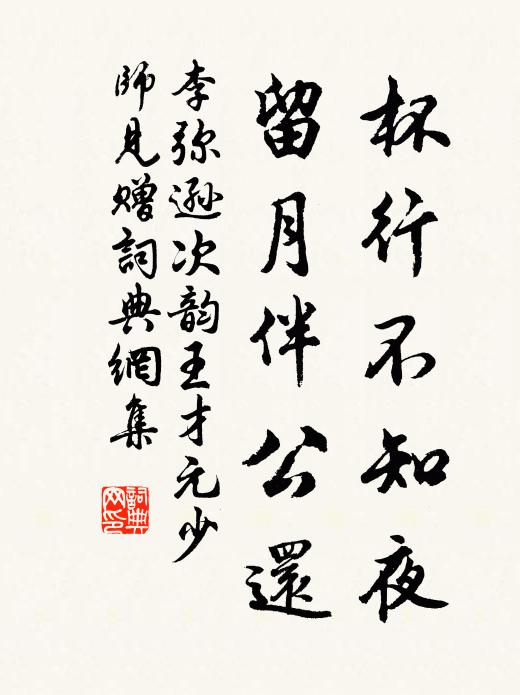 杯行不知夜
留月伴公還
李弥遜次韵王才元少
師見贈詞典網集
詞典
网印